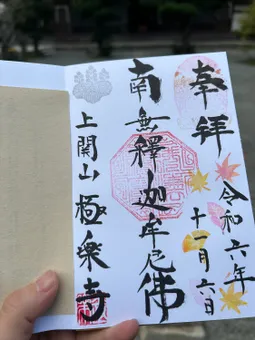 奉拝
令和六年
十一月六日
南無釋迦牟尼佛
上関山 極楽寺